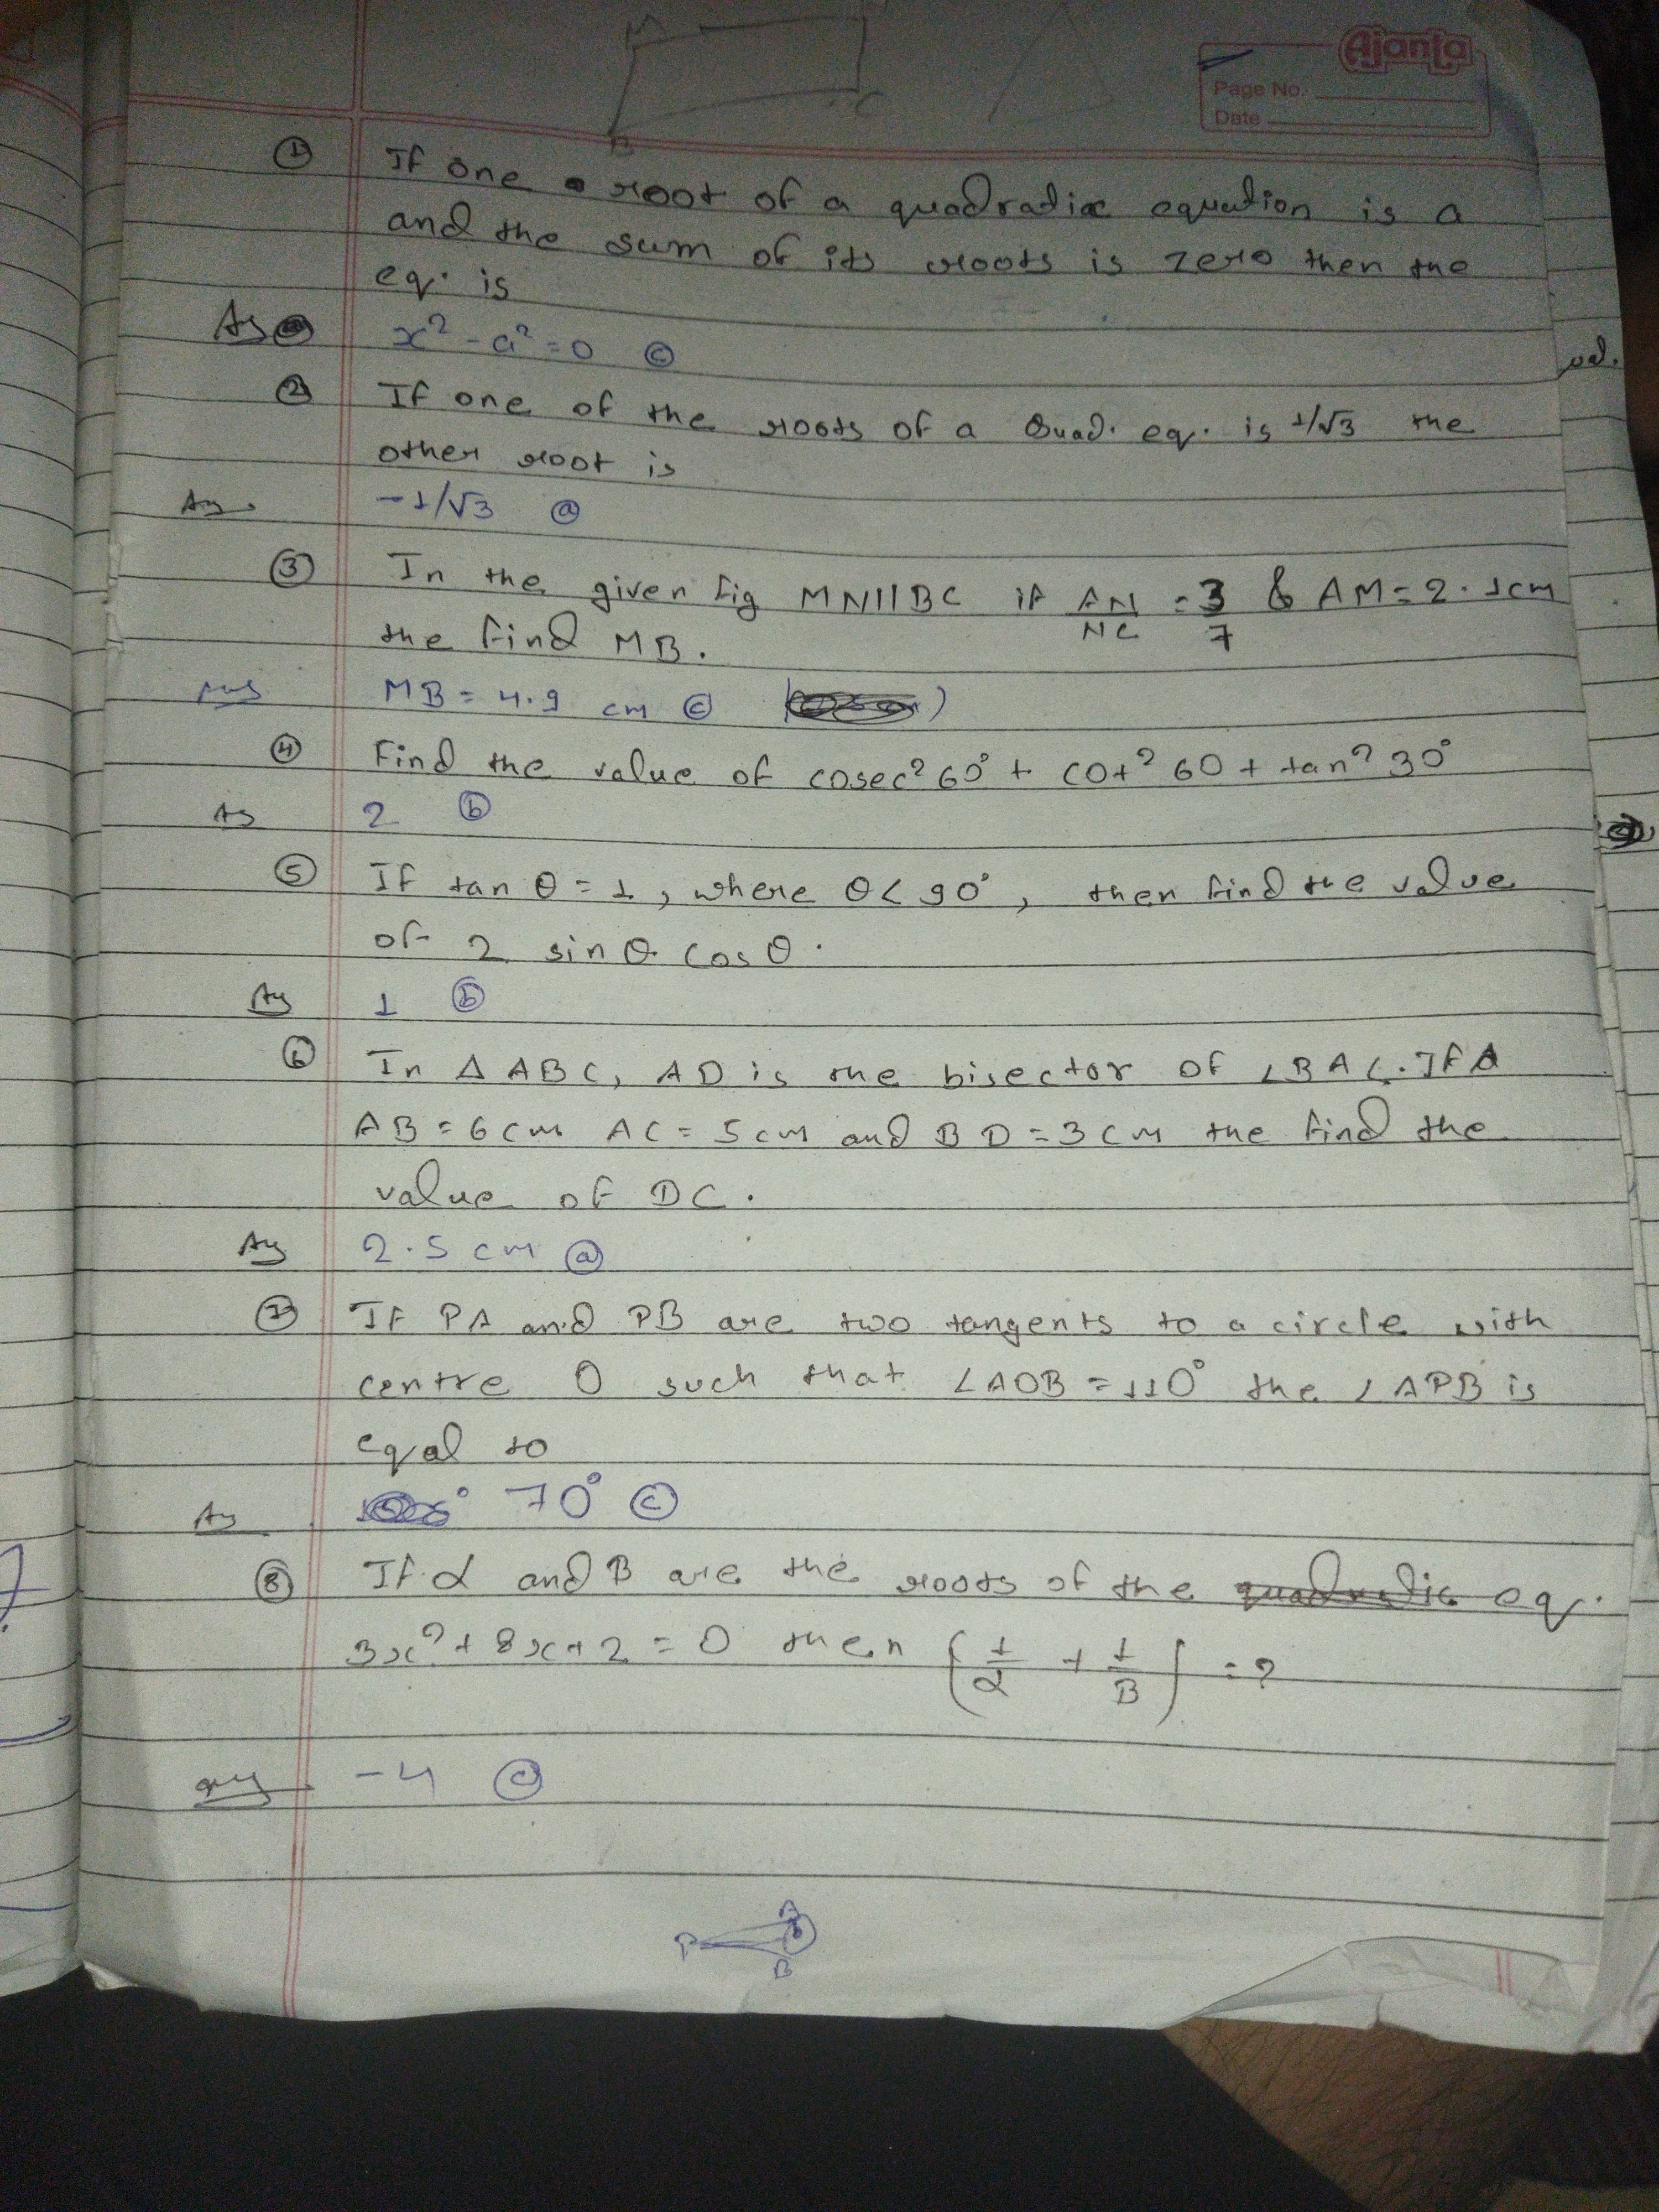 Ajanta
Page No.
Date
M
C
B
① If one root of a quadratic equation is a
and the sum of its roots is zero then the
eq. is
As x² - a² = 0 ⓒ
② If one of the roots of a Quad. eq. is 1/√3 the
other root is
An. -1/√3 ⓐ
③ In the given fig MN||BC if AN/NC = 3/7 & AM = 2.1cm
the find MB.
Ans MB = 4.9 cm ⓒ
④ Find the value of cosec² 60° + cot² 60 + tan² 30°
As 2 ⓑ
⑤ If tan θ = 1, where θ < 90°, then find the value
of 2 sin θ. cos θ.
As 1 ⓑ
⑥ In △ ABC, AD is the bisector of ∠BAC. If
AB = 6cm AC = 5cm and BD = 3cm the find the
value of DC.
As 2.5 cm ⓐ
⑦ If PA and PB are two tangents to a circle with
centre O such that ∠AOB = 110° the ∠APB is
equal to
As 70° ⓒ
⑧ If α and B are the roots of the quadratic eq.
3x² + 8x + 2 = 0 then (1/α + 1/B) = ?
ans -4 ⓒ
A
P
B